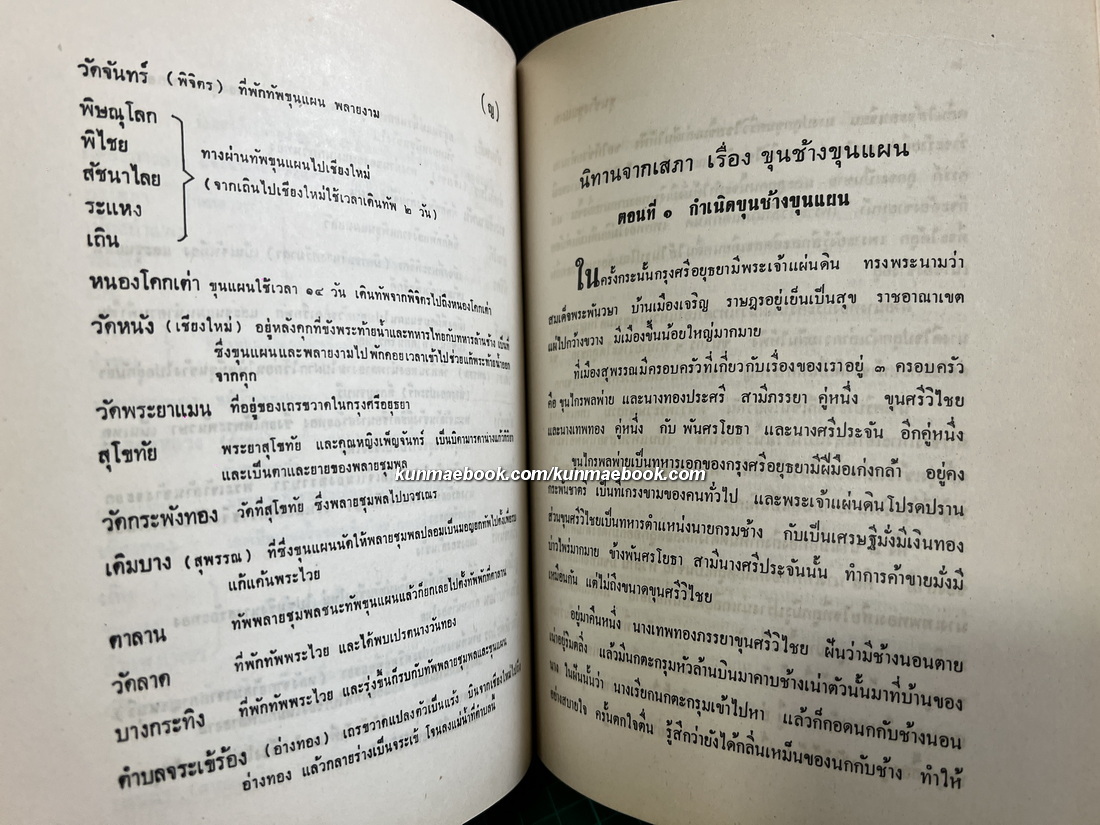 (ญ)
วัดจันทร์ (พิจิตร) ที่พักทัพขุนแผน พลายงาม
พิษณุโลก
พิไชย
สัชนาไลย
ระแหง
เถิน
ทางผ่านทัพขุนแผนไปเชียงใหม่
(จากเถินไปเชียงใหม่ใช้เวลาเดินทัพ ๒ วัน)
หนองโคกเต่า ขุนแผนใช้เวลา ๑๔ วัน เดินทัพจากพิจิตรไปถึงหนองโคกเต่า
วัดหนัง (เชียงใหม่) อยู่หลังคุกที่ขังพระท้ายน้ำและทหารไทยกับทหารล้านช้าง
ซึ่งขุนแผนและพลายงามไปพักคอยเวลาเข้าไปช่วยแก้พระท้ายน้ำออก
จากคุก
วัดพระยาแมน ที่อยู่ของเถรขวาดในกรุงศรีอยุธยา
สุโขทัย พระยาสุโขทัย และคุณหญิงเพ็ญจันทร์ เป็นบิดามารดานางแก้วกิริยา
และเป็นตาและยายของพลายชุมพล
วัดกระพังทอง วัดที่สุโขทัย ซึ่งพลายชุมพลไปบวชเณร
เดิมบาง (สุพรรณ) ที่ซึ่งขุนแผนนัดให้พลายชุมพลปลอมเป็นมอญยกทัพไปตั้งเพื่อรบ
แก้แค้นพระไวย
ตาลาน ทัพพลายชุมพลชนะทัพขุนแผนแล้วก็ยกเลยไปตั้งทัพพักที่ตาลาน
วัดลาด ที่พักทัพพระไวย และได้พบเปรตนางวันทอง
บางกระทิง ที่พักทัพพระไวย และรุ่งขึ้นก็รบกับทัพพลายชุมพลและขุนแผน
ตำบลจระเข้ร้อง (อ่างทอง) เถรขวาดแปลงตัวเป็นแร้ง บินจากเชียงใหม่ไปถึง
อ่างทอง แล้วกลายร่างเป็นจระเข้ โจนลงแม่น้ำที่ตำบลนี้
นิทานจากเสภา เรื่อง ขุนช้างขุนแผน
ตอนที่ ๑ กำเนิดขุนช้างขุนแผน
ในครั้งกระนั้นกรุงศรีอยุธยามีพระเจ้าแผ่นดิน ทรงพระนามว่า
สมเด็จพระพันวษา บ้านเมืองเจริญ ราษฎรอยู่เย็นเป็นสุข ราชอาณาเขต
แผ่ไปกว้างขวาง มีเมืองขึ้นน้อยใหญ่มากมาย
ที่เมืองสุพรรณมีครอบครัวที่เกี่ยวกับเรื่องของเราอยู่ ๓ ครอบครัว
คือ ขุนไกรพลพ่าย และนางทองประศรี สามีภรรยา คู่หนึ่ง ขุนศรีวิไชย
และนางเทพทอง คู่หนึ่ง กับ พันศรโยธา และนางศรีประจัน อีกคู่หนึ่ง
ขุนไกรพลพ่ายเป็นทหารเอกของกรุงศรีอยุธยามีฝีมือเก่งกล้า อยู่คง
กระพันชาตรี เป็นที่เกรงขามของคนทั่วไป และพระเจ้าแผ่นดินโปรดปราน
ส่วนขุนศรีวิไชยเป็นทหารตำแหน่งนายกรมช้าง กับเป็นเศรษฐีมั่งมีเงินทอง
บ่าวไพร่มากมาย ข้างพันศรโยธา สามีนางศรีประจันนั้น ทำการค้าขายมั่งมี
เหมือนกัน แต่ไม่ถึงขนาดขุนศรีวิไชย
อยู่มาคืนหนึ่ง นางเทพทองภรรยาขุนศรีวิไชย ฝันว่ามีช้างนอนตาย
เน่าอยู่ริมตลิ่ง แล้วมีนกตะกรุมหัวล้านบินมาคาบช้างเน่าตัวนั้นมาที่บ้านของ
นาง ในฝันนั้นว่า นางเรียกนกตะกรุมเข้าไปหา แล้วก็กอดนกกับช้างนอน
อย่างสบายใจ ครั้นตกใจตื่น รู้สึกว่ายังได้กลิ่นเหม็นของนกกับช้าง ทำให้
kunmaebook.com/kunmaebook.com